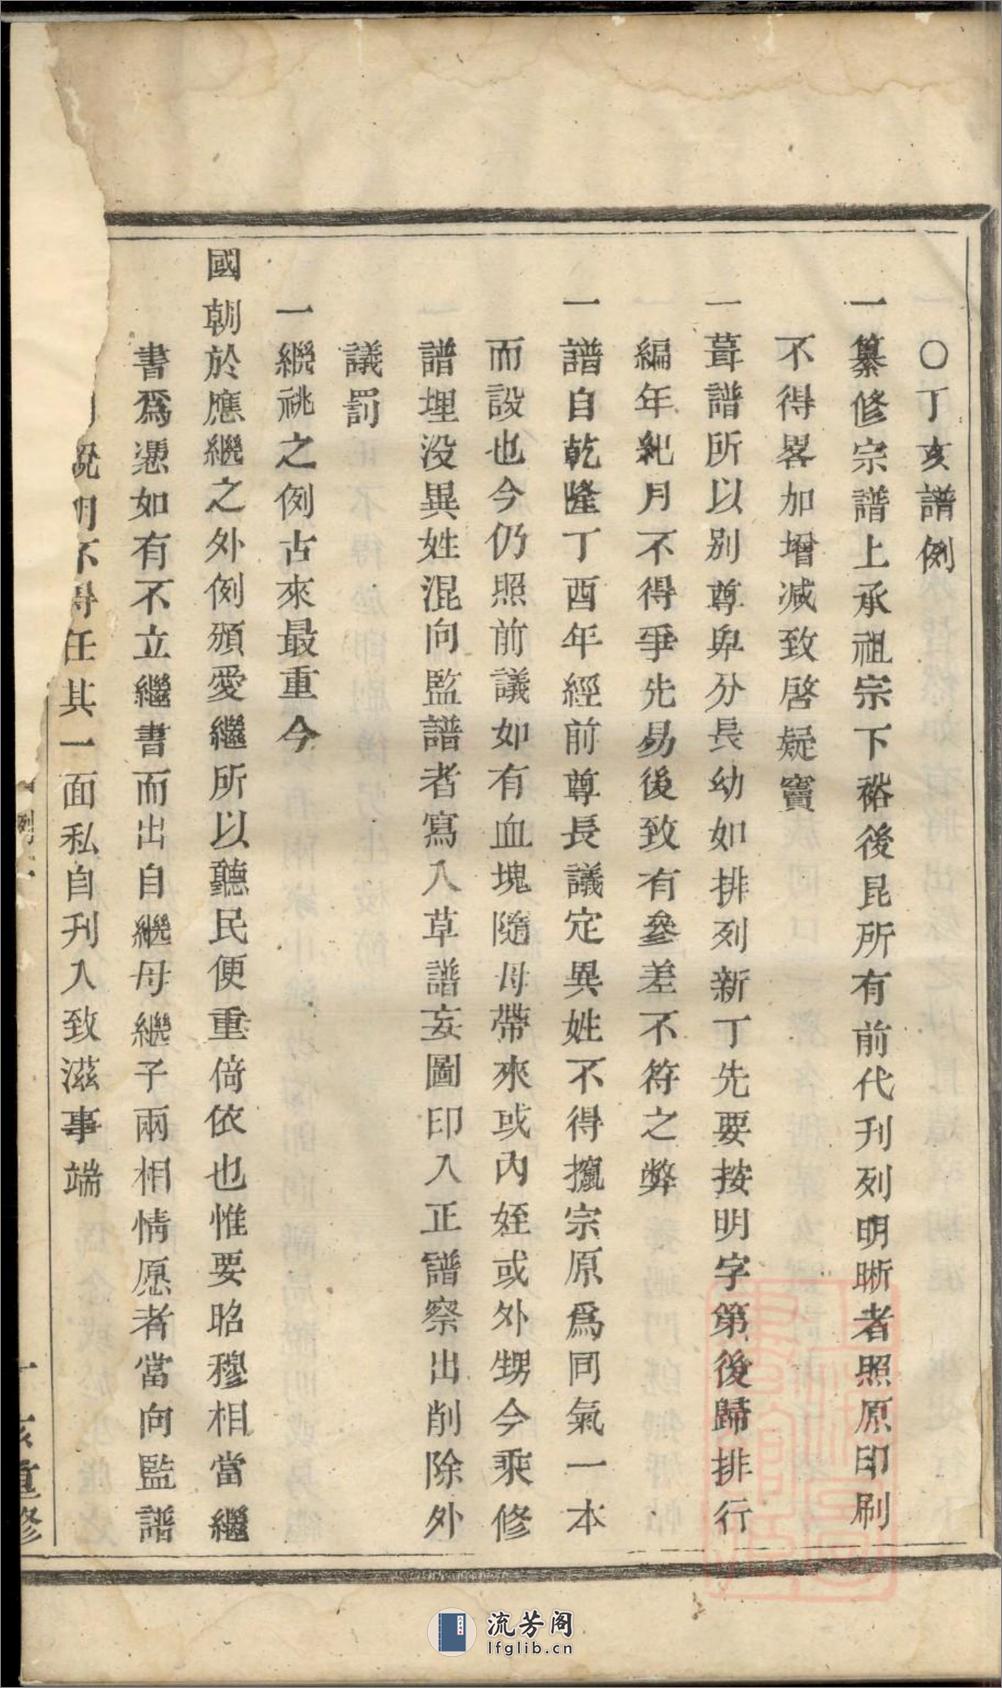 〇丁亥譜例
一纂修宗譜上承祖宗下裕後昆所有前代刋列明晰者照原印刷
不得畧加增減致啓疑竇
一葺譜所以别尊卑分長幼如排列新丁先要按明字第後歸排行
編年紀月不得爭先易後致有參差不符之弊
一譜自乾隆丁酉年經前尊長議定異姓不得攛宗原爲同氣一本
而設也今仍照前議如有血塊隨母帶來或內姪或外甥今乘修
譜埋没異姓混向監譜者寫入草譜妄圖印入正譜察出削除外
議罰
一繼祧之例古來最重今
國朝於應繼之外例頒愛繼所以聽民便重倚依也惟要昭穆相當繼
書爲憑如有不立繼書而出自繼母繼子兩相情愿者當向監譜
說明不得任其一面私自刋入致滋事端
例
亥重修
流芳阁
lfglib.cn